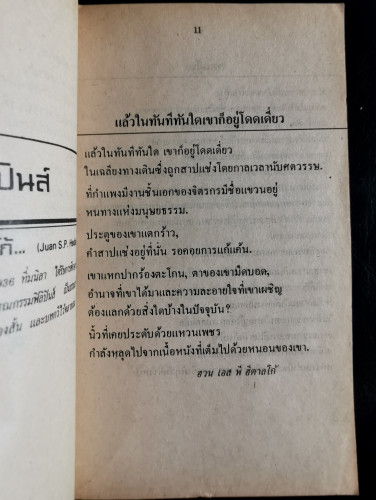 11
แล้วในทันทีทันใดเขาก็อยู่โดดเดี่ยว
แล้วในทันทีทันใด เขาก็อยู่โดดเดี่ยว
ในเฉลียงทางเดินซึ่งถูกสาปแช่งโดยกาลเวลานับศตวรรษ.
ที่กำแพงมีงานชิ้นเอกของจิตรกรมีชื่อแขวนอยู่
หนทางแห่งมนุษยธรรม.
ประตูของเขาแตกร้าว,
คำสาปแช่งอยู่ที่นั่น รอคอยการแก้แค้น.
เขาแหกปากร้องตะโกน, ตาของเขามืดบอด,
อำนาจที่เขาได้มาและความละอายใจที่เขาเผชิญ
ต้องแลกด้วยสิ่งใดบ้างในปัจจุบัน?
นิ้วที่เคยประดับด้วยแหวนเพชร
กำลังหลุดไปจากเนื้อหนังที่เต็มไปด้วยหนอนของเขา.
ฮวน เอส พี ฮิดาลโก้
ปินส์
(Juan S.P.
936 ที่มนิลา